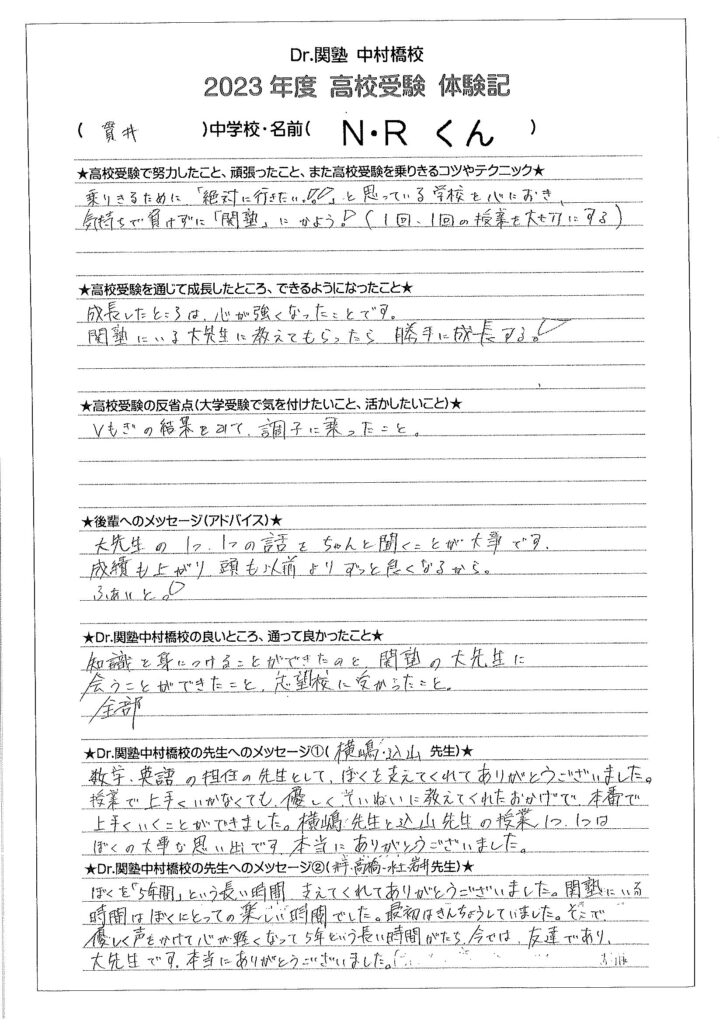 Dr.関塾 中村橋校
2023年度 高校受験 体験記
( 貫井 )中学校・名前( N・R くん )
★高校受験で努力したこと、頑張ったこと、また高校受験を乗りきるコツやテクニック★
乗りきるために、「絶対に行きたい!!」と思っている学校を心におき、
気持ちで負けずに「関塾」にかよう!(1回、1回の授業を大切にする)
★高校受験を通じて成長したところ、できるようになったこと★
成長したところは、心が強くなったことです。
関塾にいる大先生に教えてもらったら 勝手に成長する!
★高校受験の反省点(大学受験で気を付けたいこと、活かしたいこと)★
Vもぎの結果をみて、調子に乗ったこと。
★後輩へのメッセージ(アドバイス)★
大先生の1つ、1つの話をちゃんと聞くことが大事です。
成績も上がり、頭も以前よりずっと良くなるから。
ふぁいと!
★Dr.関塾中村橋校の良いところ、通って良かったこと★
知識を身につけることができたのと、関塾の大先生に
会うことができたこと、志望校に受かったこと。
全部
★Dr.関塾中村橋校の先生へのメッセージ①( 横嶋・込山 先生)★
数学、英語の担任の先生として、ぼくを支えてくれてありがとうございました。
授業で上手くいかなくても、優しくていねいに教えてくれたおかげで、本番で
上手くいくことができました。横嶋先生と込山先生の授業1つ、1つは
ぼくの大事な思い出です。本当にありがとうございました。
★Dr.関塾中村橋校の先生へのメッセージ②( ・高橋・ 岩井先生)★
ぼくを「5年間」という長い時間、支えてくれてありがとうございました。関塾にいる
時間はぼくにとっての楽しい時間でした。最初はきんちょうしていました。そこで、
優しく声をかけて心が軽くなって5年という長い時間がたち、今では、友達であり、
大先生です。本当にありがとうございました。